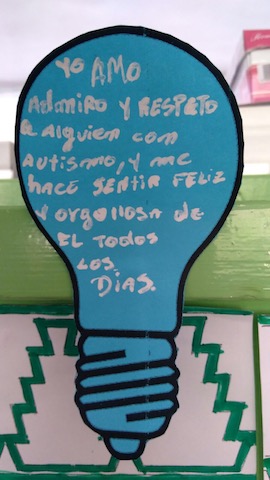 Yo AMO
Admiro Y RESPETO
a Alguien con
autismo, y me
hace SENTIR FELIZ
y orgollosa de
EL TODOS
LOS
DIAS.